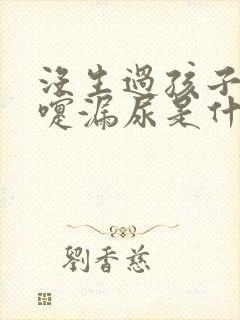 沒生過孩子
嚏漏尿是什
劉香慈